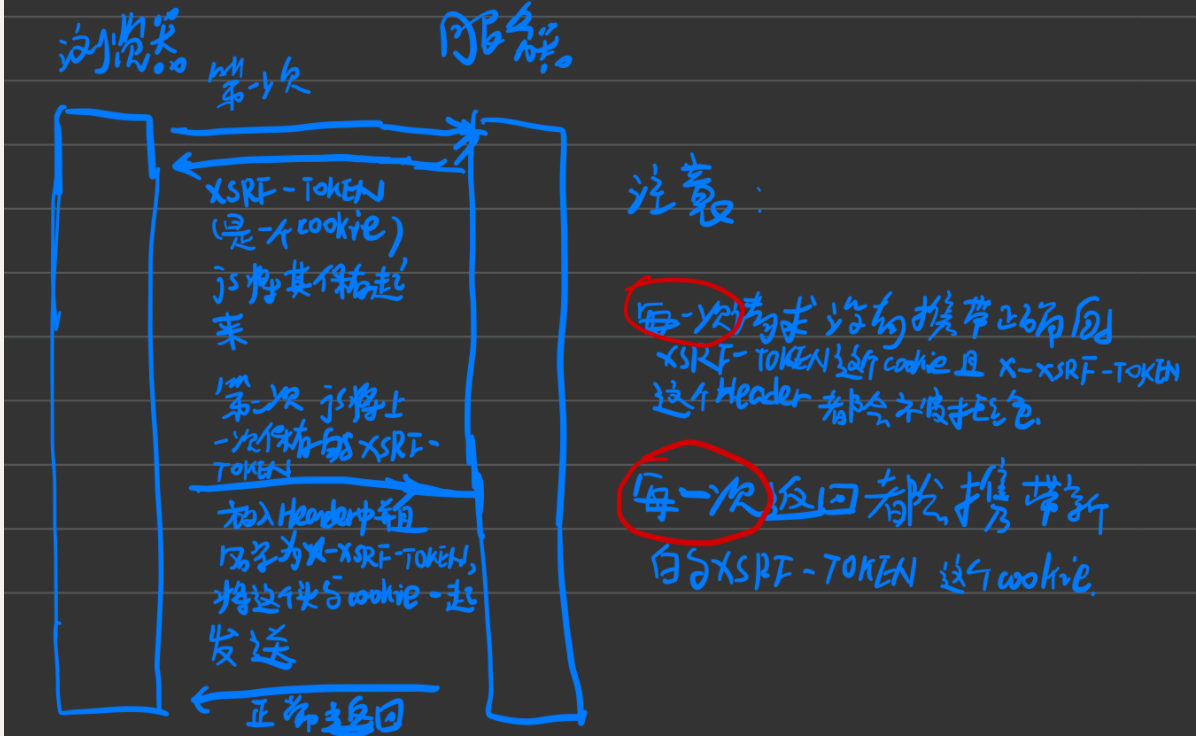 浏览器
服务器
第一次
XSRF-TOKEN
(是一个cookie)
js将其保存起
来
第二次 js将上
一次保存的XSRF-
TOKEN
放入Header中并且
名字为X-XSRF-TOKEN,
将这个头与cookie一起
发送
正常返回
注意:
每一次请求没有携带正确的
XSRF-TOKEN这个cookie且 X-XSRF-TOKEN
这个Header 都会被
每一次返回都会携带新
的XSRF-TOKEN 这个cookie.